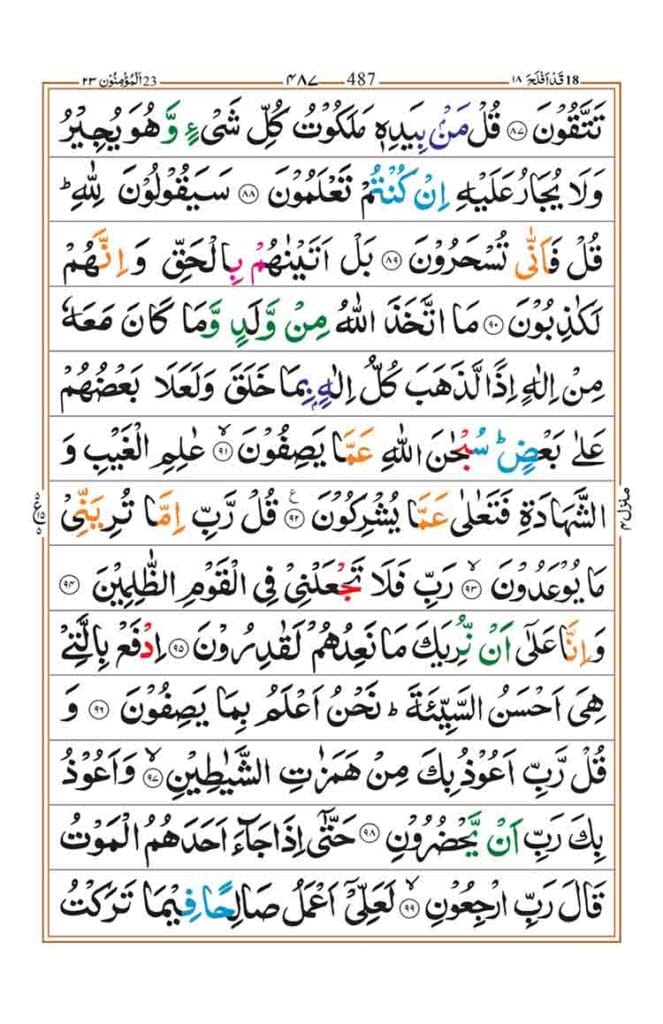 18 قَدْ اَفْلَحَ ١٨ 487 ۴۸۷ 23 اَلْمُؤْمِنُوْن ٢٣
تَتَّقُوْنَ ﴿۸۷﴾ قُلْ مَنْۢ بِيَدِهٖ مَلَكُوْتُ كُلِّ شَىْءٍ وَّ هُوَ يُجِيْرُ
وَلَا يُجَارُ عَلَيْهِ اِنْ كُنْتُمْ تَعْلَمُوْنَ ﴿۸۸﴾ سَيَقُوْلُوْنَ لِلّٰهِ ؕ
قُلْ فَاَنّٰى تُسْحَرُوْنَ ﴿۸۹﴾ بَلْ اَتَيْنٰهُمْ بِالْحَقِّ وَ اِنَّهُمْ
لَكٰذِبُوْنَ ﴿۹۰﴾ مَا اتَّخَذَ اللّٰهُ مِنْ وَّلَدٍ وَّمَا كَانَ مَعَهٗ
مِنْ اِلٰهٍ اِذًا لَّذَهَبَ كُلُّ اِلٰهٍۢ بِمَا خَلَقَ وَلَعَلَا بَعْضُهُمْ
عَلٰى بَعْضٍ ؕ سُبْحٰنَ اللّٰهِ عَمَّا يَصِفُوْنَ ۙ﴿۹۱﴾ عٰلِمِ الْغَيْبِ وَ
الشَّهَادَةِ فَتَعٰلٰى عَمَّا يُشْرِكُوْنَ ﴿۹۲﴾ ع قُلْ رَّبِّ اِمَّا تُرِيَنِّىْ
مَا يُوْعَدُوْنَ ۙ﴿۹۳﴾ رَبِّ فَلَا تَجْعَلْنِىْ فِى الْقَوْمِ الظّٰلِمِيْنَ ﴿۹۴﴾
وَ اِنَّا عَلٰٓى اَنْ نُّرِيَكَ مَا نَعِدُهُمْ لَقٰدِرُوْنَ ﴿۹۵﴾ اِدْفَعْ بِالَّتِىْ
هِىَ اَحْسَنُ السَّيِّئَةَ ؕ نَحْنُ اَعْلَمُ بِمَا يَصِفُوْنَ ﴿۹۶﴾ وَ
قُلْ رَّبِّ اَعُوْذُ بِكَ مِنْ هَمَزٰتِ الشَّيٰطِيْنِ ۙ﴿۹۷﴾ وَ اَعُوْذُ
بِكَ رَبِّ اَنْ يَّحْضُرُوْنِ ﴿۹۸﴾ حَتّٰٓى اِذَا جَآءَ اَحَدَهُمُ الْمَوْتُ
قَالَ رَبِّ ارْجِعُوْنِ ۙ﴿۹۹﴾ لَعَلِّىْٓ اَعْمَلُ صَالِحًا فِيْمَا تَرَكْتُ
منزل ۴